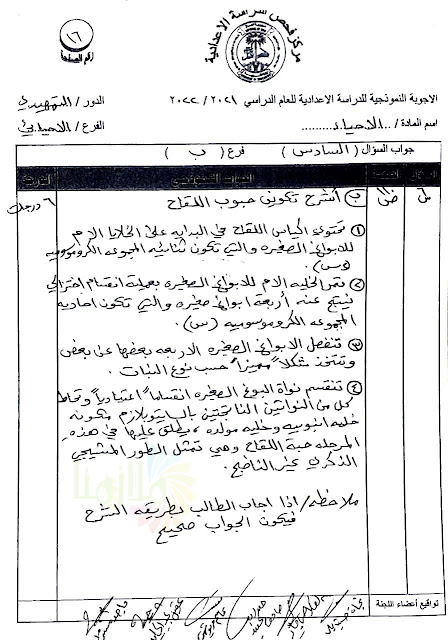 ١٦
رقم الصفحة
مركز فحص الدراسة الاعدادية
الاجوبة النموذجية للدراسة الاعدادية للعام الدراسي ٢٠٢١ / ٢٠٢٢
الدور / التمهيدي
اسم المادة / .. الاحياء ..........
الفرع / الاحيائي
جواب السؤال ( السادس ) فرع ( ب )
الدرجة
ب) أشرح تكوين حبوب اللقاح
٦ درجات
① تحتوي اكياس اللقاح في البدايه على الخلايا الام
للابواغ الصغيره والتي تكون ثنائيه المجموعه الكروموسوميه
(٢س).
② تمر الخليه الام للابواغ الصغيره بعملية انقسام اختزالي
ينتج عنه أربعة ابواغ صغيره والتي تكون احاديه
المجموعه الكروموسوميه (س).
③ تنفصل الابواغ الصغيره الاربعه بعضها عن بعض
وتتخذ شكلاً مميزاً حسب نوع النبات.
④ تنقسم نواة البوغ الصغيره انقساماً اعتيادياً وتحاط
كل من النواتين الناتجتين بالسايتوبلازم مكونه
خليه انبوبيه وخليه مولده، يطلق عليها في هذه
المرحله حبة اللقاح وهي تمثل الطور المشيجي
الذكري غير الناضج.
ملاحظه / اذا اجاب الطالب بطريقه الشرح
فيكون الجواب صحيح
ملازمنا
تواقيع أعضاء اللجنة